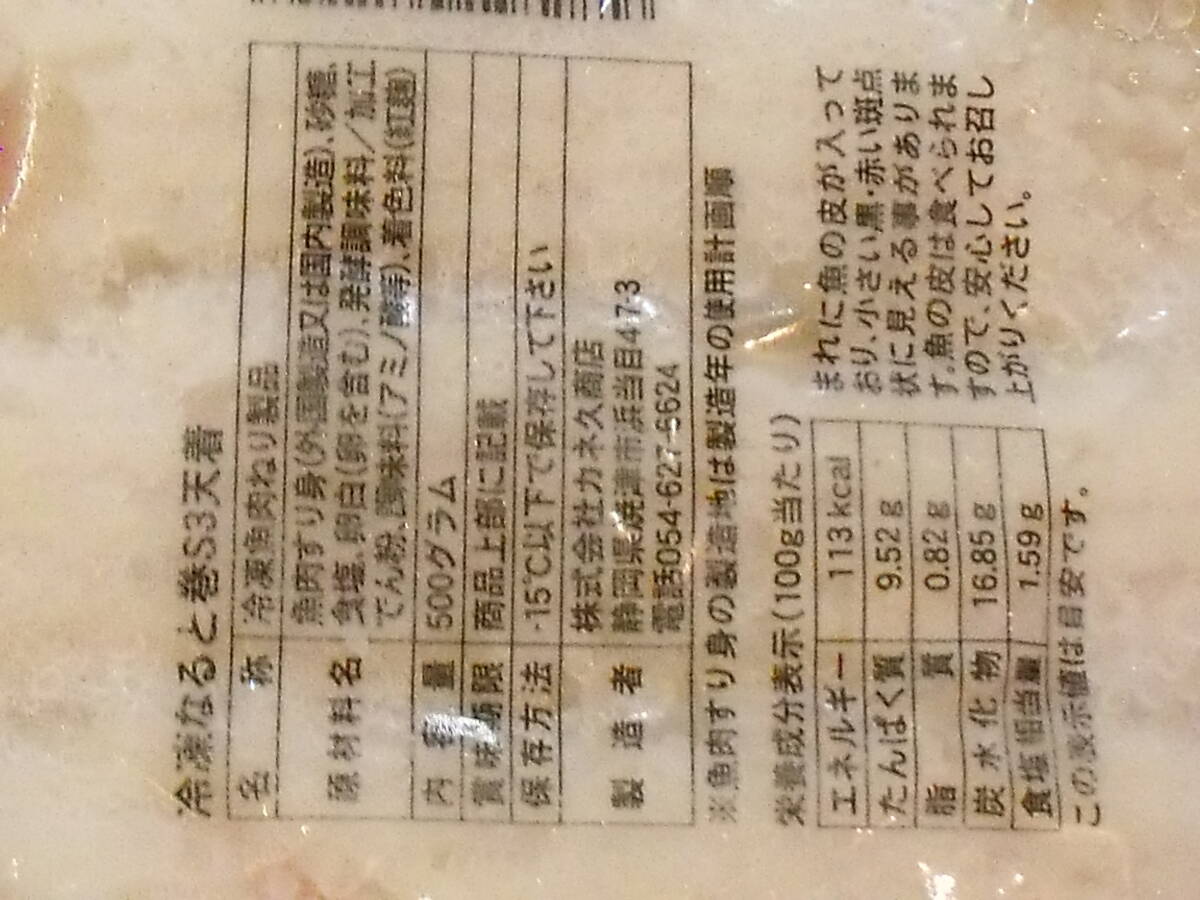 冷凍なると巻S3天着
名称 冷凍魚肉ねり製品
原材料名 魚肉すり身(外国製造又は国内製造)、砂糖、
食塩、卵白(卵を含む)、発酵調味料/加工
でん粉、調味料(アミノ酸等)、着色料(紅麹)
内容量 500グラム
賞味期限 商品上部に記載
保存方法 -15℃以下で保存して下さい
製造者 株式会社カネ久商店
静岡県焼津市浜当目47-3
電話054-627-6624
※魚肉すり身の製造地は製造年の使用計画順
栄養成分表示(100g当たり)
エネルギー 113kcal
たんぱく質 9.52g
脂質 0.82g
炭水化物 16.85g
食塩相当量 1.59g
この表示値は目安です。
まれに魚の皮が入って
おり、小さい黒・赤い斑点
状に見える事がありま
す。魚の皮は食べられま
すので、安心してお召し
上がりください。